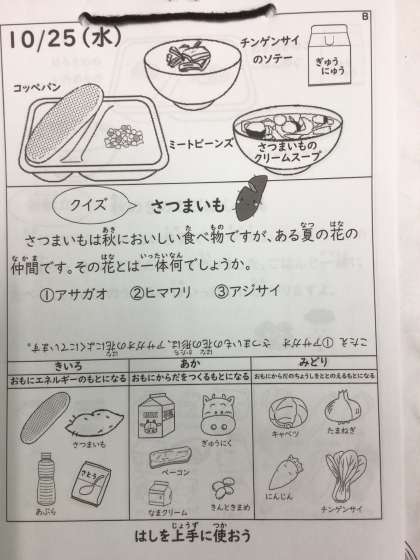 B
10/25(水)
チンゲンサイ
のソテー
ぎゅう
にゅう
コッペパン
ミートビーンズ
さつまいもの
クリームスープ
クイズ
さつまいも
さつまいもは秋においしい食べ物ですが、ある夏の花の
仲間です。その花とは一体何でしょうか。
①アサガオ ②ヒマワリ ③アジサイ
こたえ ①アサガオ さつまいもの花の形は、アサガオの花によくにています。
きいろ
あか
みどり
おもにエネルギーのもとになる
おもにからだをつくるもとになる
おもにからだのちょうしをととのえるもとになる
さつまいも
あぶら
さとう
ぎゅうにく
ベーコン
なまクリーム
きんときまめ
キャベツ
たまねぎ
にんじん
チンゲンサイ
はしを上手に使おう